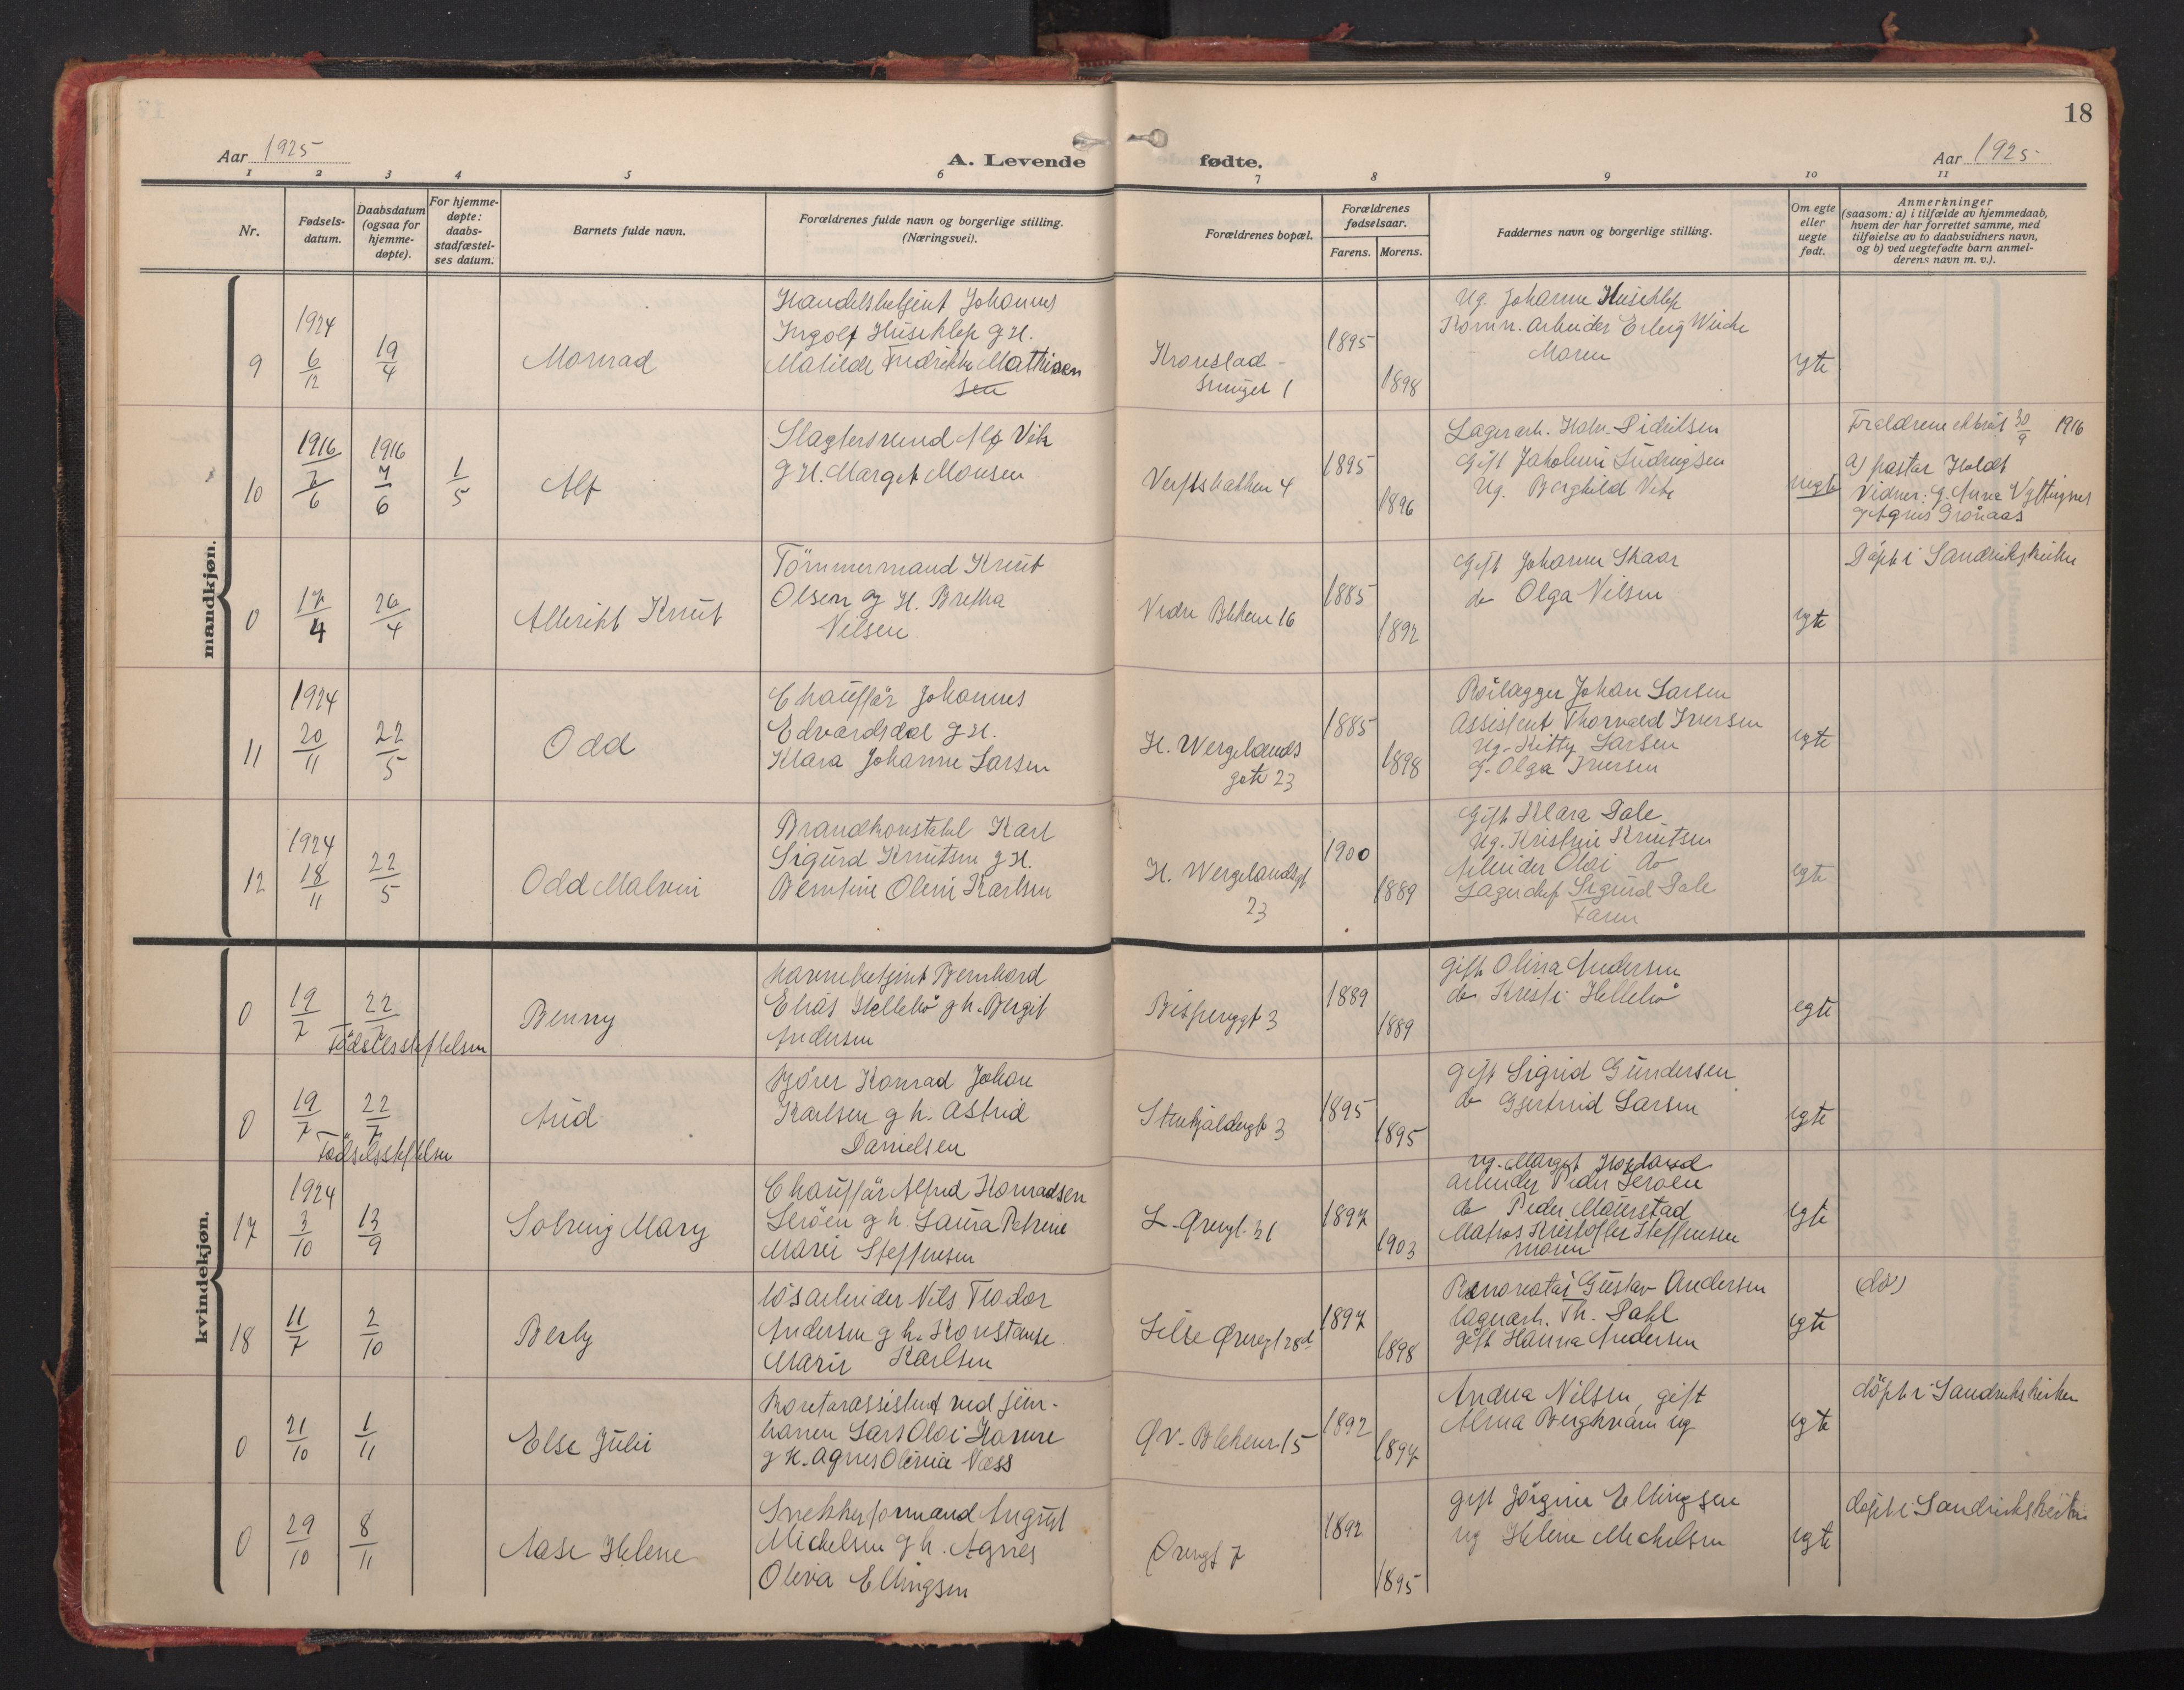 18
Aar 1925
A. Levende
fødte.
Aar 1925
1 2 3 4 5 6 7 8 9 10 11
Nr.
Fødsels-
datum.
Daabsdatum
(ogsaa for
hjemme-
døpte).
For hjemme-
døpte:
daabs-
stadfæstel-
ses datum.
Barnets fulde navn.
Forældrenes fulde navn og borgerlige stilling.
(Næringsvei).
Forældrenes bopæl.
Forældrenes
fødselsaar.
Farens. Morens.
Faddernes navn og borgerlige stilling.
Om egte
eller
uegte
født.
Anmerkninger
(saasom: a) i tilfælde av hjemmedaab,
hvem der har forrettet samme, med
tilføielse av to daabsvidners navn,
og b) ved uegtefødte barn anmel-
derens navn m. v.).
mandkjøn.
9
1924
6/12
19/4
Monrad
Handelsbetjent Johannes
Ingolf Huseklep g H.
Matilde Fredrikke Mathisen
sen
Kronstad-
smuget 1
1895
1898
Ug. Johanne Huseklep
Komm. arbeider Erling
Moren
egte
10
1916
7/6
1916
7/6
1/5
Alf
Slagtersvend Alf Vik
g H. Marget Monsen
Verftsbakken 4
1895
1896
Lagerarb. Halv. Didriksen
Gift Jakobine Ludvigsen
Ug. Berghild Vik
uegte
Forældrene 30/9 1916
a) pastor Holdt
Vidner: g. Anna
g Agnes Grønaas
0
17/4
26/4
Albrikt Knut
Tömmermand Knut
Olsen g H. Bretha
Nilsen
Nedre Blekevei 16
1885
1892
Gift Johanne Skaar
do Olga Nilsen
egte
Döpt i Sandvikskirken
11
1924
20/11
22/5
Odd
Chauffør Johannes
Edvardsdal g H.
Klara Johanne Larsen
H. Wergelands
gate 23
1885
1898
Rørlægger Johan Larsen
Assistent Thorvald Iversen
Ug. Kitty Larsen
g. Olga Iversen
egte
12
1924
18/11
22/5
Odd Malvin
Brandkonstabel Karl
Sigurd Knutsen g H.
Berntine Oline Karlsen
H. Wergelandsgt
23
1900
1889
Gift Klara Dale
Ug. Kristine Knutsen
Arbeider Olai do
Lagerchef Sigurd Dale
Faren
egte
kvindekjøn.
0
19/7
22/7
Fødselsstiftelsen
Benny
havnebetjent Bernhard
Elias Hellebø g h. Bergit
Andersen
Bispenggt 3
1889
1889
Gift Olina Andersen
do Kristi Hellebø
egte
0
19/7
22/7
Fødselsstiftelsen
Aud
kjører Konrad Johan
Karlsen g h. Astrid
Danielsen
Stenkjældergt 3
1895
1895
gift Sigrid Gundersen
do Gjertrud Larsen
egte
17
1924
3/10
13/9
Solveig Mary
Chauffør Alfred Konradsen
Seröen g h. Laura Petrine
Marie Steffensen
L. Øvregt. 31
1897
1903
ug. Marget Hordaard
arbeider Peder Seröen
do Peder Maurstad
Matros Kristoffer Steffensen
moren
egte
18
11/7
2/10
Berly
lösarbeider Nils Teodor
Andersen g h. Konstanse
Marie Karlsen
Lille Øvregt 28d
1897
1898
Gustav Andersen
lagerarb. Th. Dahl
gift Hanna Andersen
egte
(dö)
0
21/10
1/11
Else Julie
Kontorassistent ved jern-
banen Lars Olai Hamre
g H. Agnes Olivia Næss
Øv. Blekevei 15
1892
1897
Andrea Nilsen, gift
Alma Berghvam ug
egte
döpt i Sandvikskirken
0
29/10
8/11
Aase Helene
Snekkerformand August
Mickelsen g h. Agnes
Oliva Ellingsen
Øvregt 7
1892
1895
gift Jörgine Ellingsen
ug Helene Mickelsen
egte
döpt i Sandvikskirken